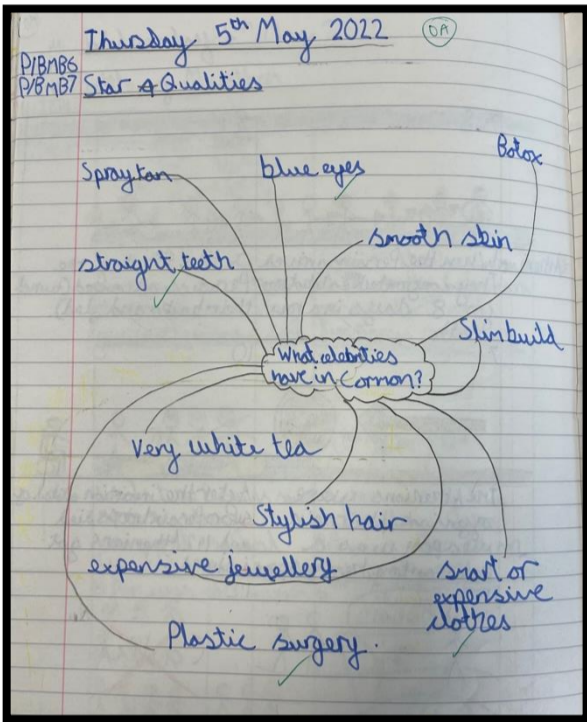 Thursday 5th May 2022
OA
P/BMB6
P/BMB7 Star Qualities
Botox
Spray tan
blue eyes
smooth skin
straight teeth
Slim build
What celebrities
have in Common?
Very white tea
Stylish hair
expensive jewellery
smart or
expensive
clothes
Plastic surgery.